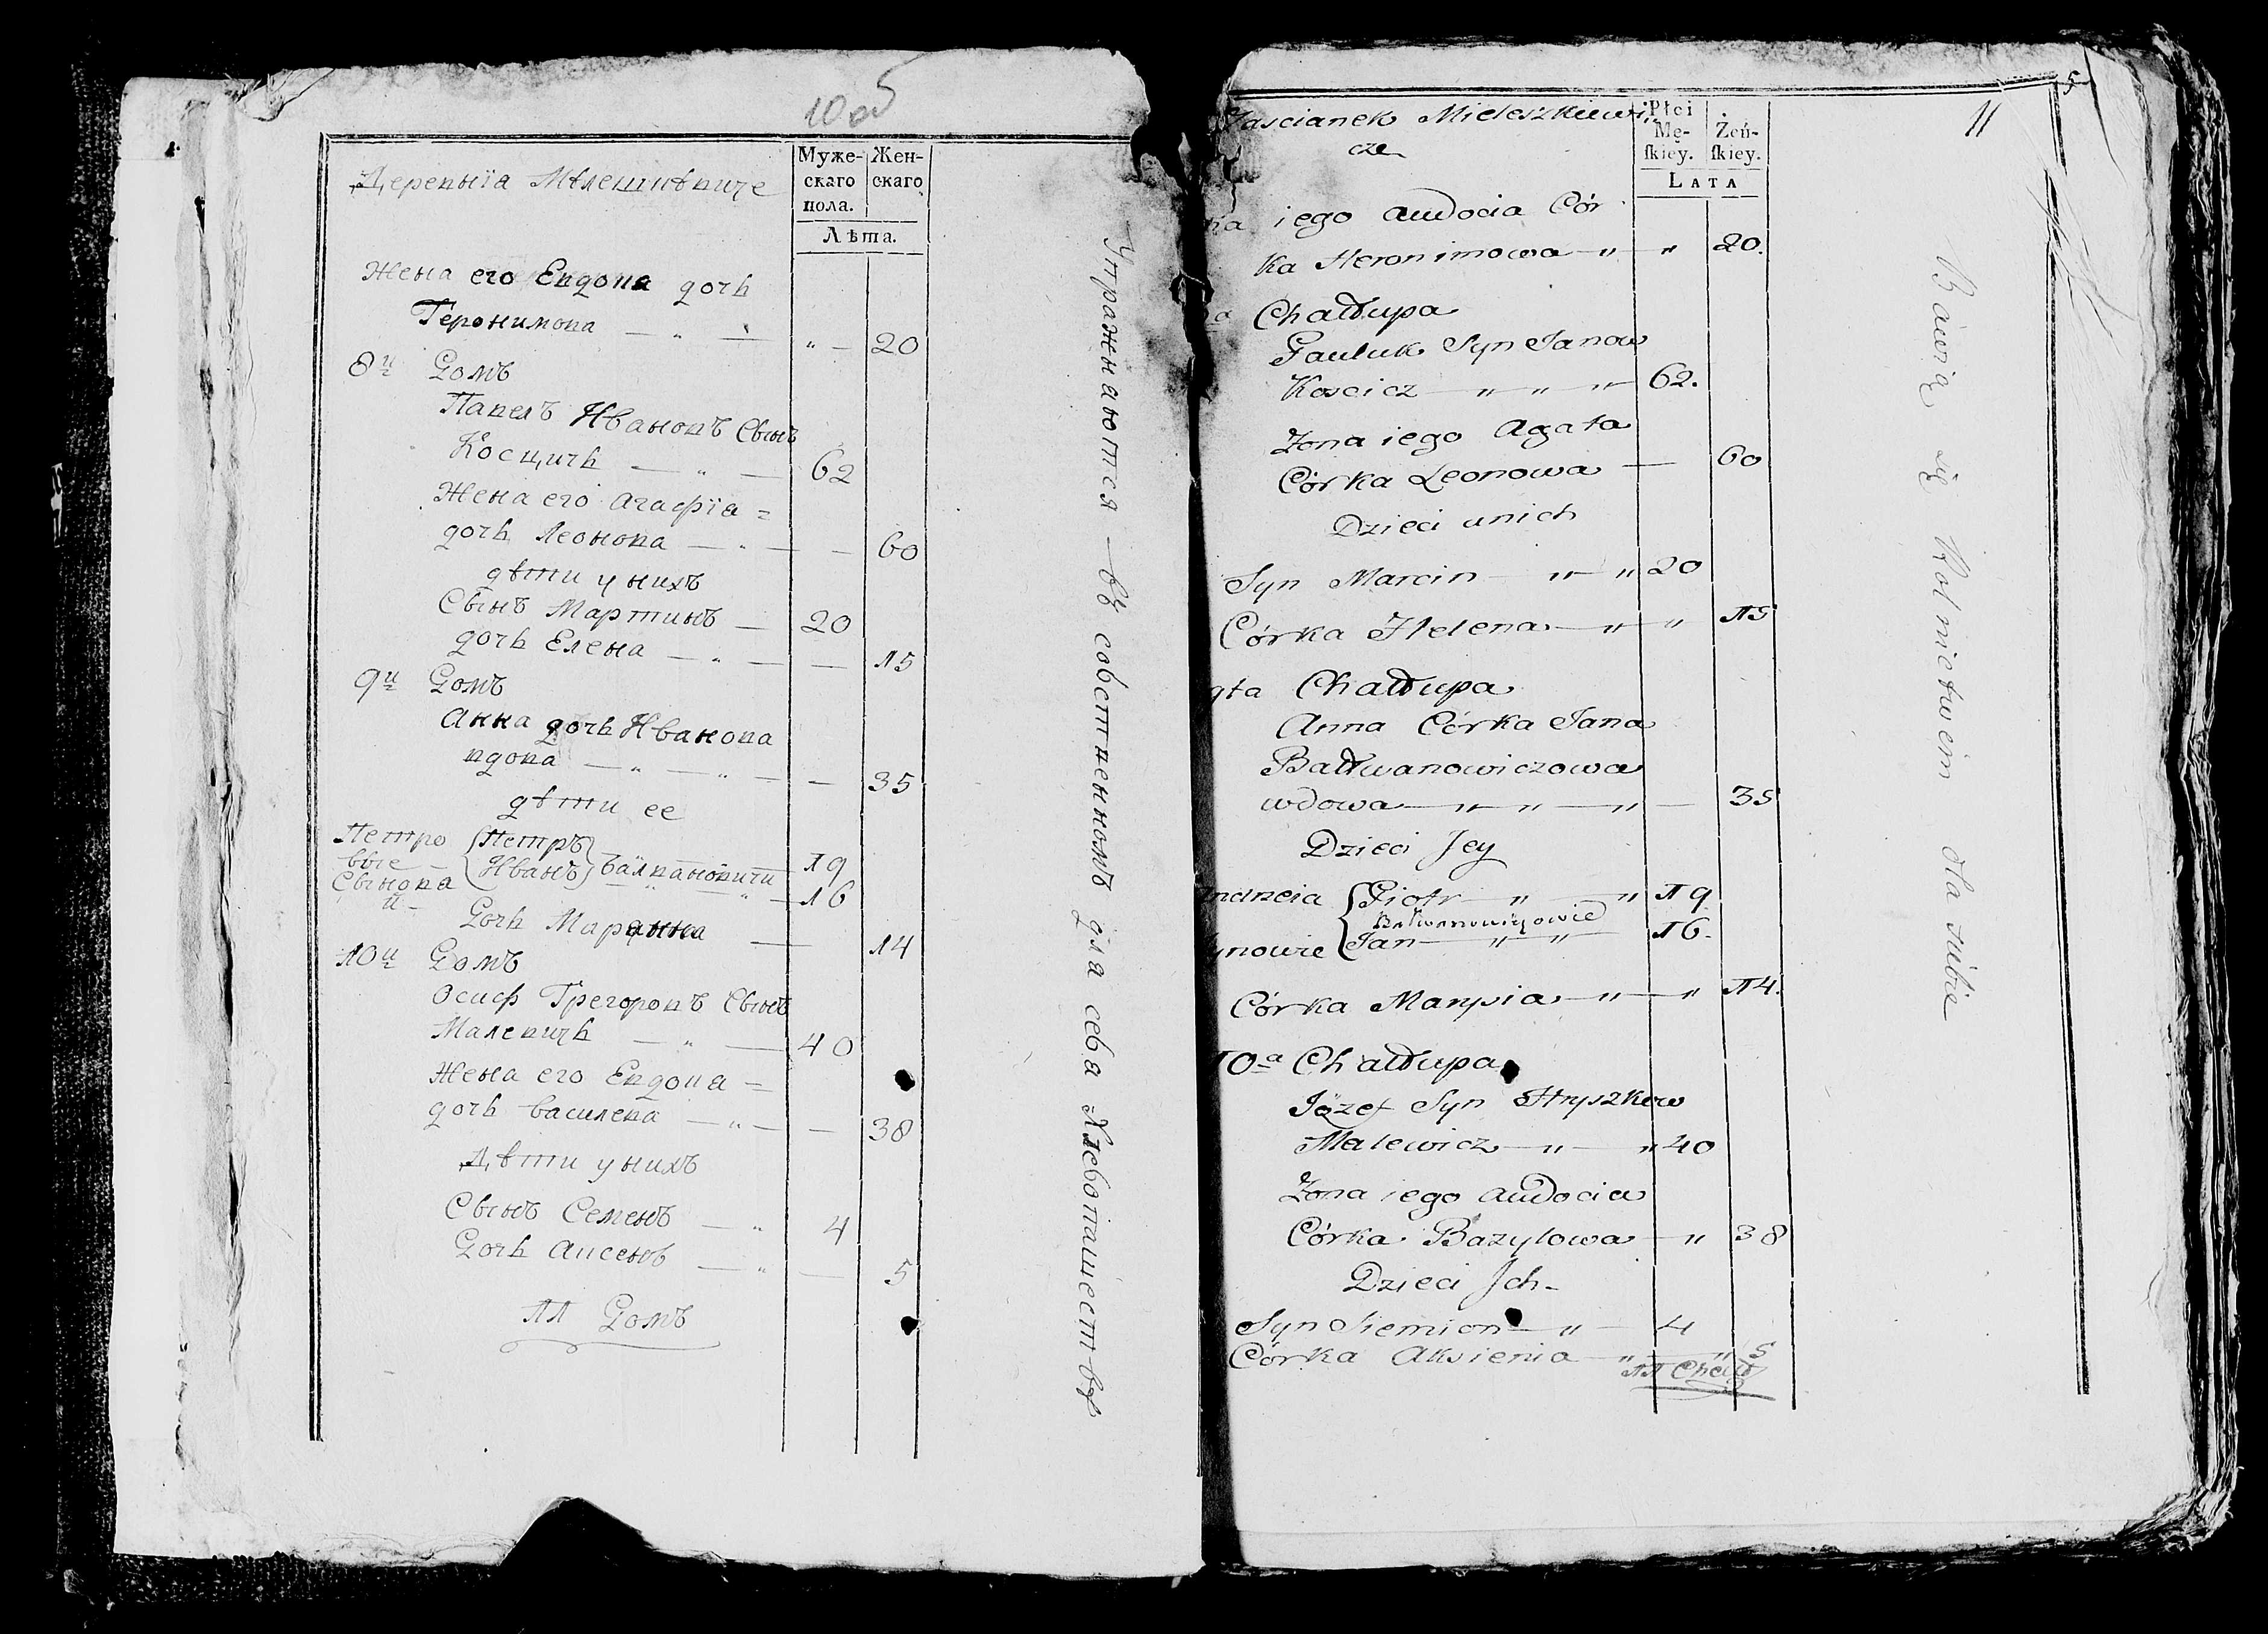 10 об
Деревнїа Мѣлешкѣвиче
Муже-
скаго
пола.
Жен-
скаго
Лѣта.
Жена его Евдоциа дочь
Геронимова — „ — „ — 20
8й Домъ
Павелъ Ивановъ Сынъ
Косцичь — „ — 62
Жена его Агафїа =
дочь Леонова — „ — — 60
дѣти у нихъ
Сынъ Мартинъ — 20
дочь Елена — „ — — 15
9й Домъ
Анна дочь Иванова
вдова — „ — „ — — 35
дѣти ее
Петро
вые
Сынова
и
Петръ
Иванъ
Балвановичи — 19
— „ — „ — 16
Дочь Марына — 14
10й Домъ
Осиф Грегоровъ Сынъ
Малевичь — „ — 40
Жена его Евдоциа =
дочь Василева — „ — — 38
Дѣти у нихъ
Сынъ Семенъ — „ 4
Дочь Аксенъ — „ — 5
11 Домъ
Упражнаютса въ собственномъ для себя Хлебопашествѣ
5
11
Zascianek Mieleszkiewi
cze
Płci
Mę-
ſkiey.
Żeń-
ſkiey.
LATA
na iego Audocia Cór
ka Heronimowa — „ — „ 20.
a Chałłupa
Pauluk Syn Janow
Koscicz — „ „ „ — 62.
Zona iego Agata
Córka Leonowa — 60
Dzieci unich
Syn Marcin — „ — „ 20
Córka Helena — „ — „ 15
9ta Chałłupa
Anna Córka Jana
Bałwanowiczowa
wdowa — „ — „ — „ — 35
Dzieci Jey
Piotr „ — „ 19
Bałwanowiczowie
ynowie Jan — „ — „ — 16.
Córka Marysia — „ — „ 14.
10a Chałłupa
Józef Syn Hryszkow
Malewicz — „ — „ 40
Zona iego Audocia
Córka Bazylowa — „ 38
Dzieci Jch-
Syn Siemion — „ — 4
Córka Aksienia — „ — „ 5
11 Chałł
Bawią się Rolnictwem dla siebie